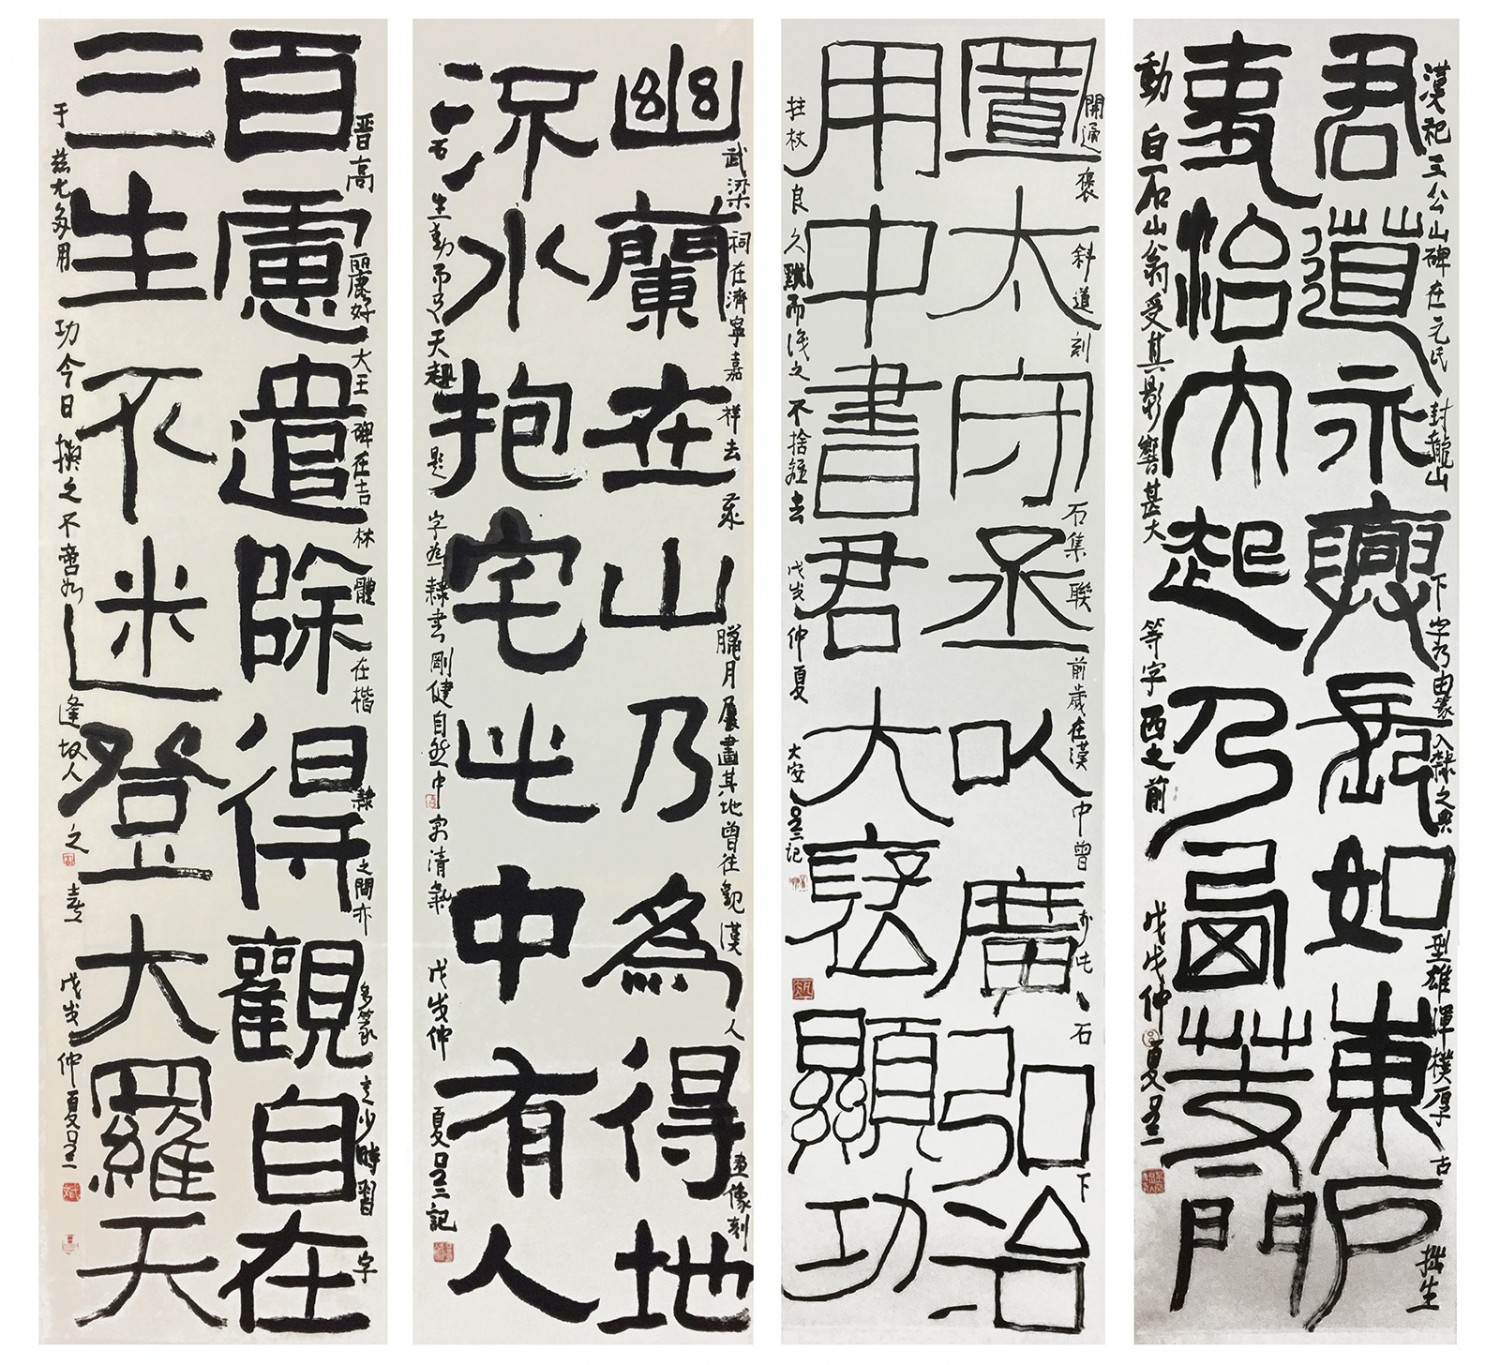 漢祀三公山碑在元氏封龍山下字乃由篆入隸之典型雄渾樸厚古拙生
君道永興長如東戶
事內起乃門
動白石山翁受其影響甚大等字西之前戊戌仲夏呂三
開通褒斜道刻石集聯前歲在漢中曾於此石下
置太守丞以廣弘治
用中書君大褒顯功
拄杖良久默而識之不捨離去戊戌仲夏大安呂三記
武梁祠在濟寧嘉祥去歲臘月展畫其地曾往觀漢人畫像刻
幽蘭在山乃為得地
流水抱宅此中有人
石生動而多天趣題字為隸書剛健自然中寓清氣戊戌仲夏呂三記
晋高麗好大王碑在吉林體在楷隸之間亦多篆意少時習字
百慮遣除得觀自在
三生不迷登大羅天
于茲尤多用功今日撫之不啻如逢故人之喜戊戌仲夏呂三